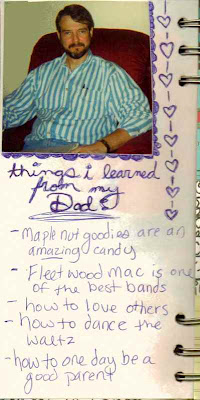 things i learned
from my
Dad:
- Maple nut goodies are an
amazing candy
- Fleetwood Mac is one
of the best bands
- how to love others
- how to dance the
waltz
- how to one day be a
good parent